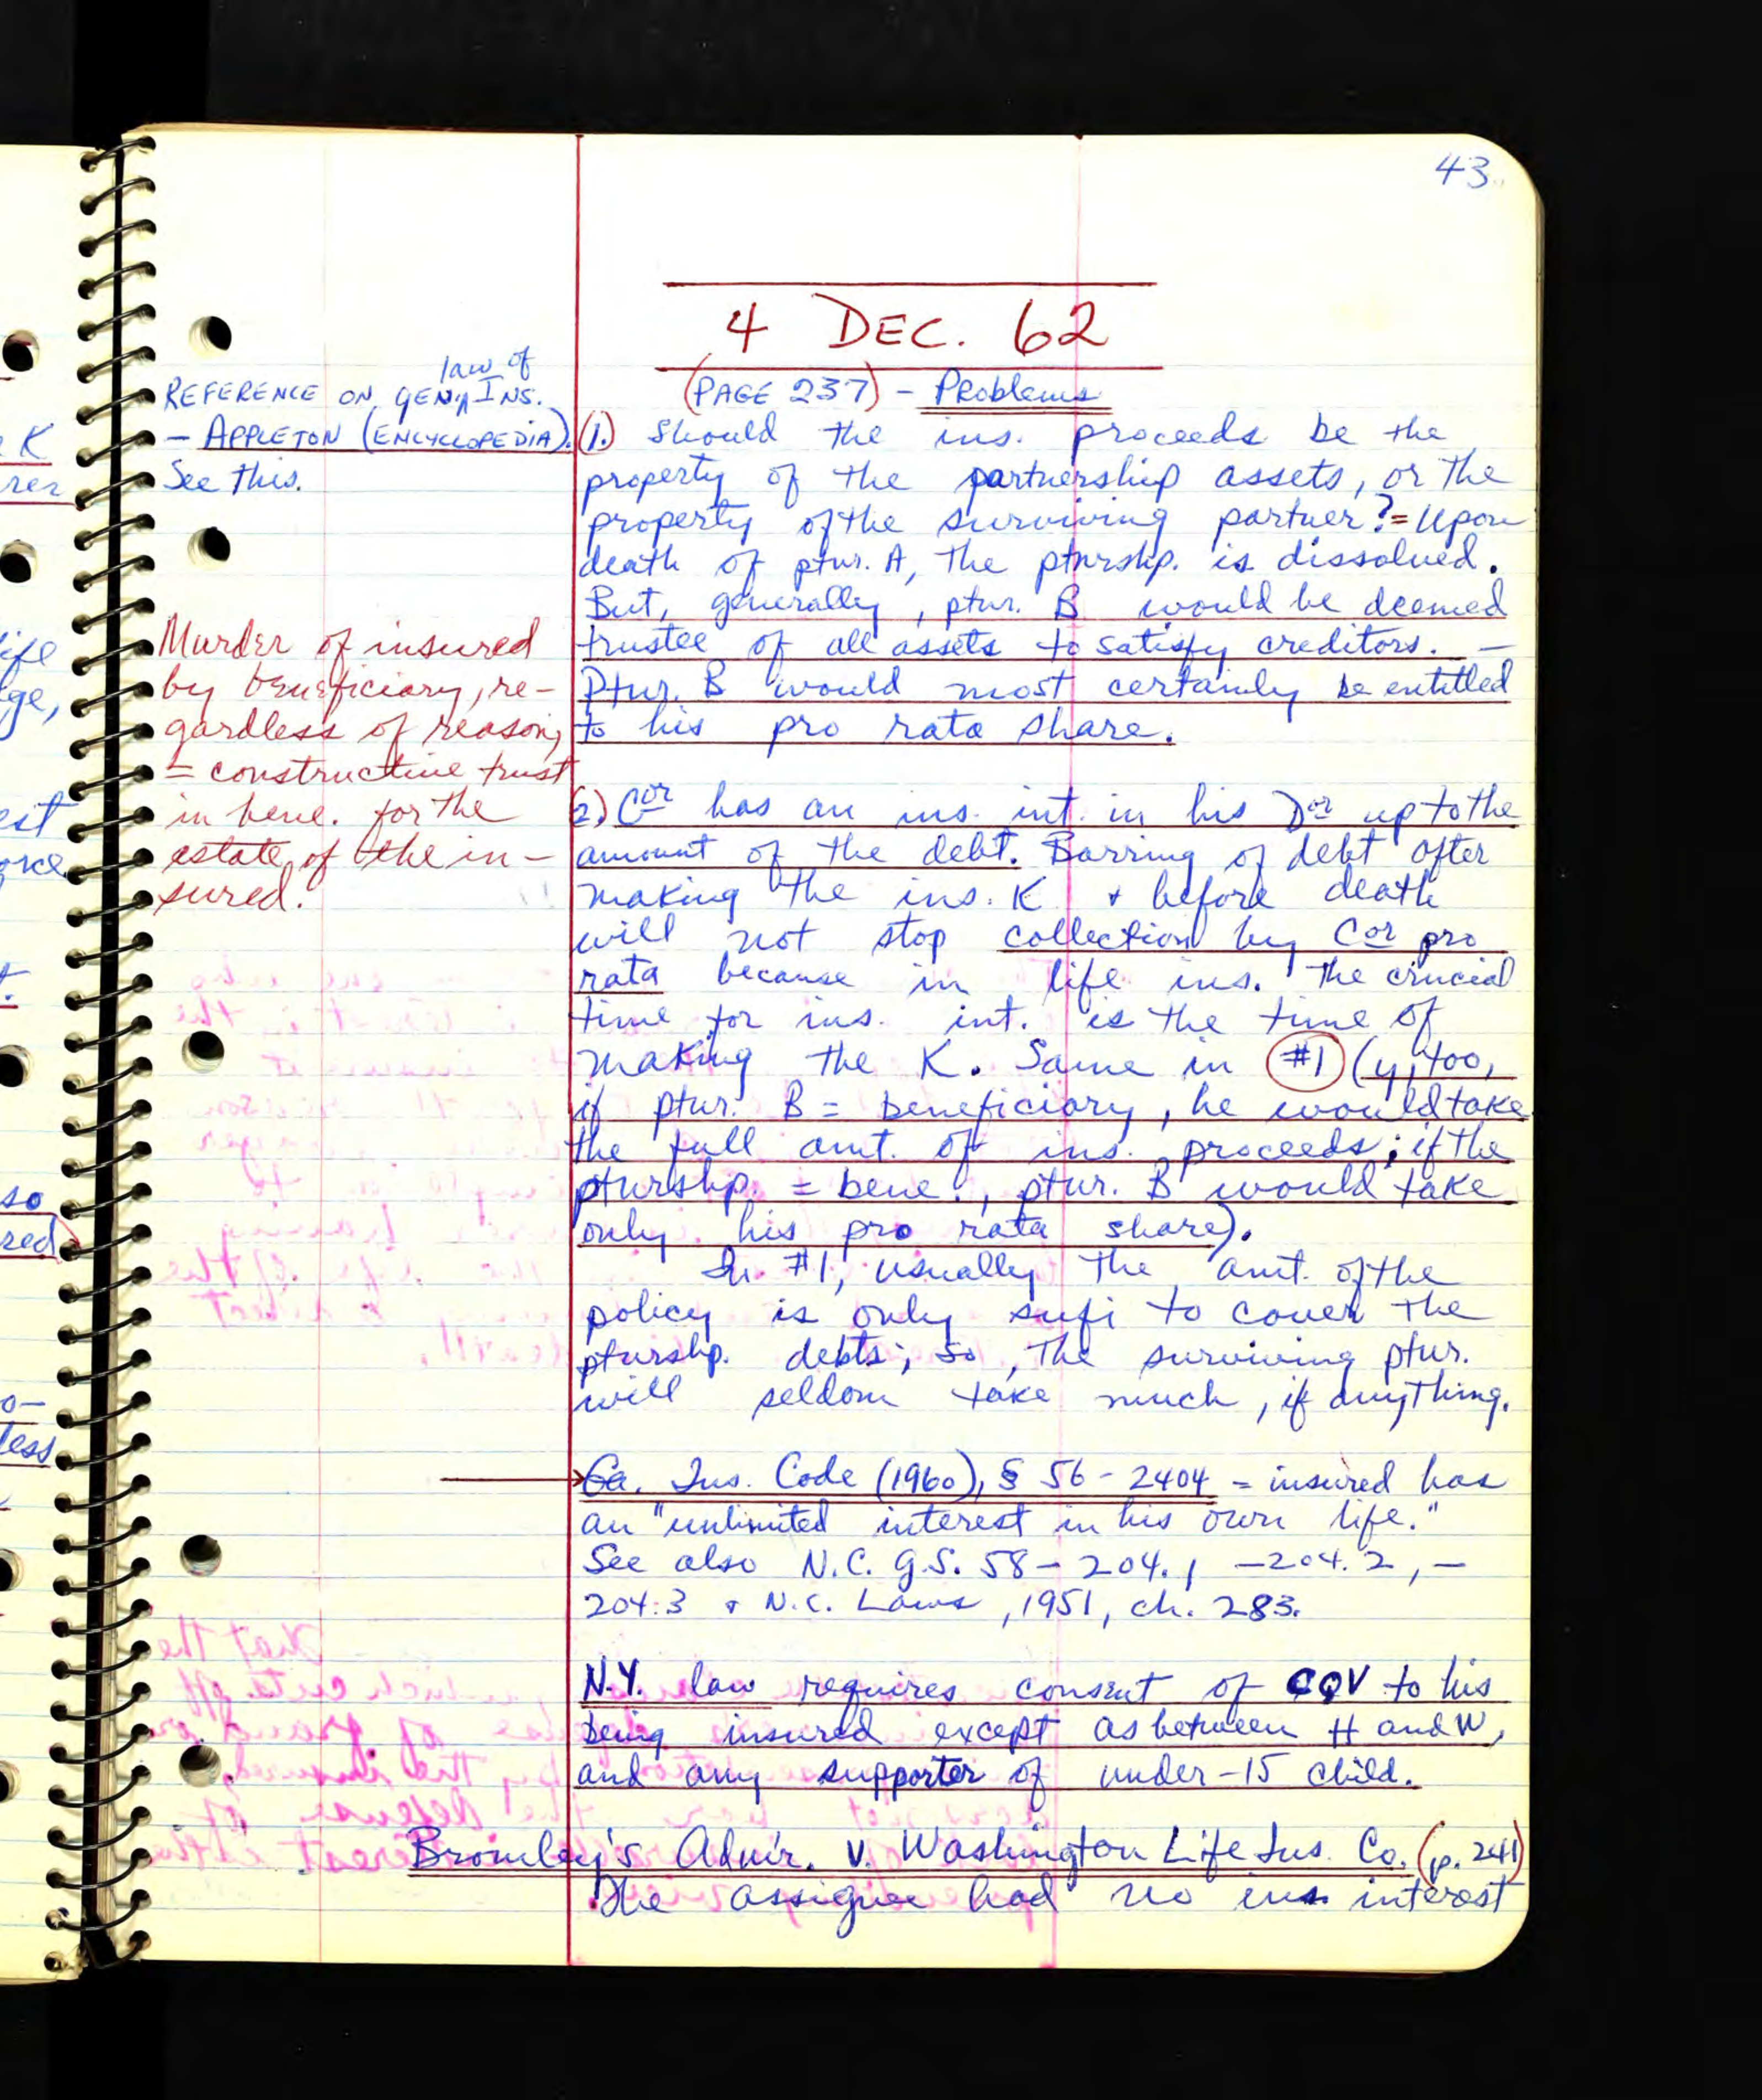 43.
4 DEC. 62
(PAGE 237) - Problems
law of
REFERENCE ON GEN'L INS.
- APPLETON (ENCYCLOPEDIA).
See this.
Murder of insured
by beneficiary, re-
gardless of reason,
= constructive trust
in bene. for the
estate of the in-
sured.
(1.) Should the ins. proceeds be the
property of the partnership assets, or the
property of the surviving partner? = Upon
death of ptnr. A, the ptnrshp. is dissolved.
But, generally, ptnr. B would be deemed
trustee of all assets to satisfy creditors. —
Ptnr. B would most certainly be entitled
to his pro rata share.
(2) Cor has an ins. int. in his Dor up to the
amount of the debt. Barring of debt after
making the ins. K + before death
will not stop collection by Cor pro
rata because in life ins. the crucial
time for ins. int. is the time of
making the K. Same in #1 (y, too,
if ptnr. B = beneficiary, he would take
the full amt. of ins. proceeds; if the
ptnrshp. = bene., ptnr. B would take
only his pro rata share).
In #1, usually the amt. of the
policy is only sufi to cover the
ptnrshp. debts; so, the surviving ptnr.
will seldom take much, if anything.
Ga. Ins. Code (1960), § 56-2404 = insured has
an "unlimited interest in his own life."
See also N.C. G.S. 58-204.1, -204.2, -
204.3 + N.C. Laws, 1951, ch. 283.
N.Y. law requires consent of CQV to his
being insured except as between H and W,
and any supporter of under-15 child.
Bromley's Adm'r. v. Washington Life Ins. Co. (p. 241)
The assignee had no ins. interest